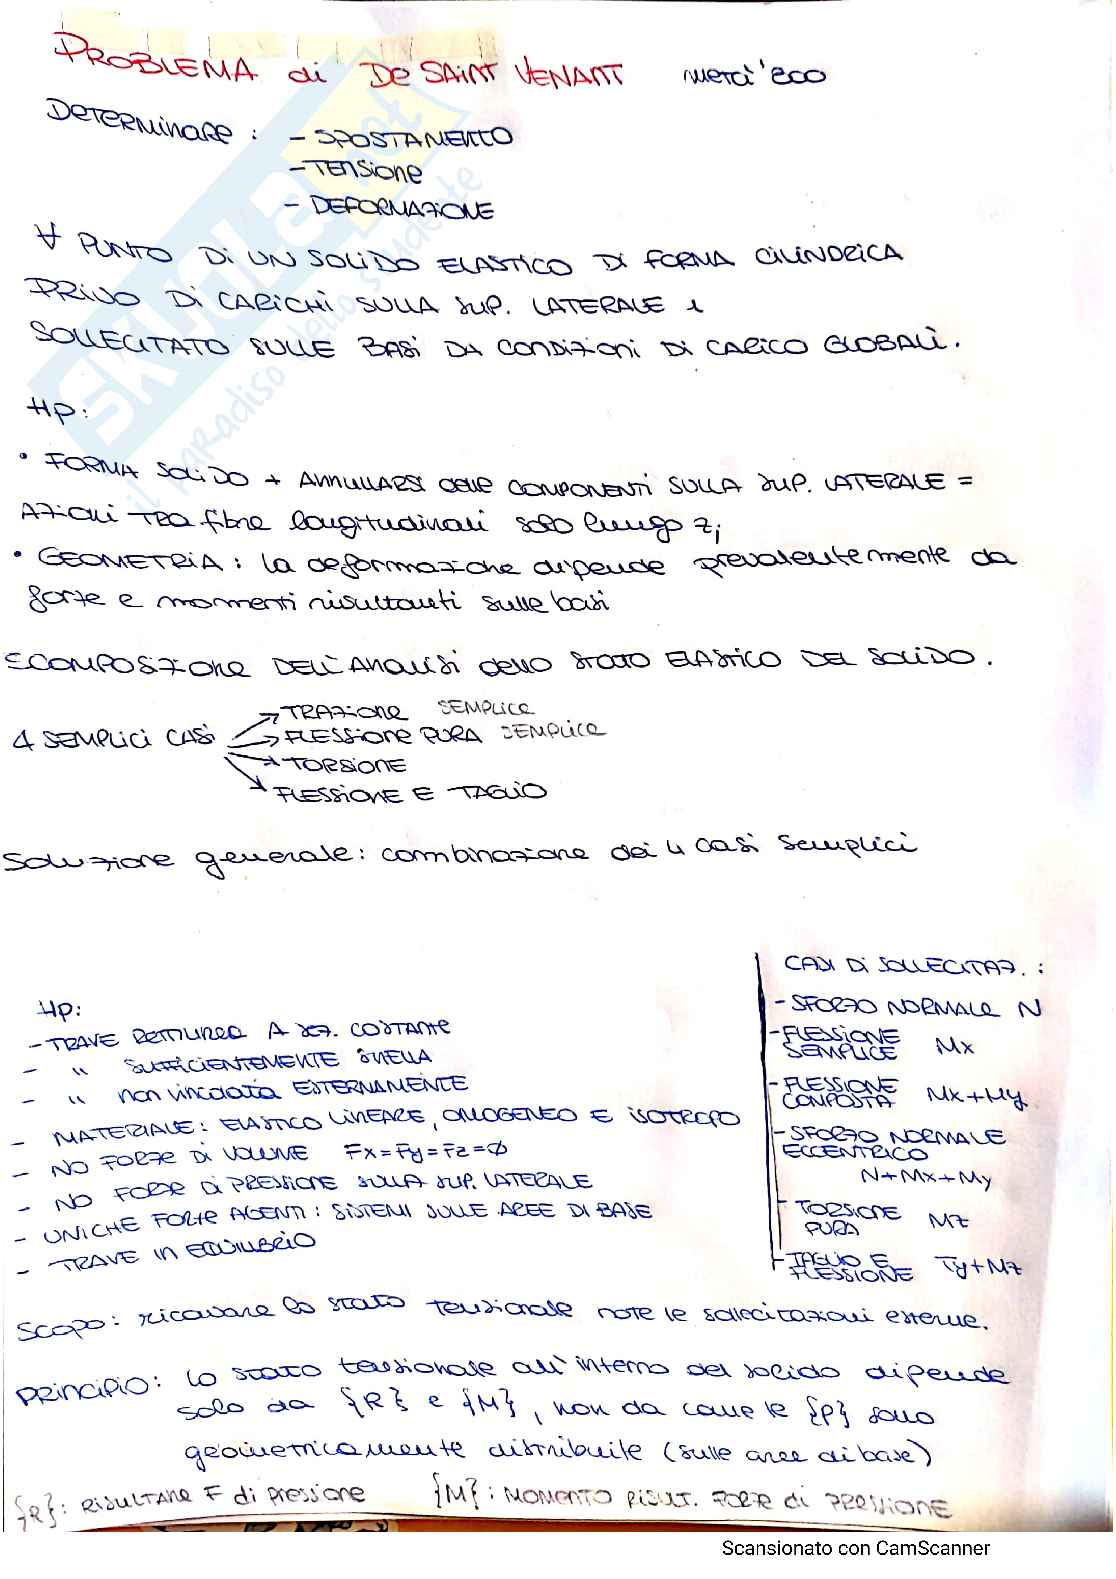 PROBLEMA di DE SAINT VENANT
DETERMINARE : - SPOSTAMENTO
- TENSIONE
- DEFORMAZIONE
∀ PUNTO DI UN SOLIDO ELASTICO DI FORMA CILINDRICA
PRIVO DI CARICHI SULLA SUP. LATERALE e
SOLLECITATO SULLE BASI DA CONDIZIONI DI CARICO GLOBALI.
Hp:
• FORMA SOLIDO + ANNULLARSI delle COMPONENTI SULLA SUP. LATERALE =
AZIONI TRA fibre longitudinali solo lungo z;
• GEOMETRIA : la deformazione dipende prevalentemente da
forze e momenti risultanti sulle basi
SCOMPOSIZIONE DELL'ANALISI dello STATO ELASTICO DEL SOLIDO.
4 SEMPLICI CASI
TRAZIONE SEMPLICE
FLESSIONE PURA SEMPLICE
TORSIONE
FLESSIONE E TAGLIO
Soluzione generale : combinazione dei 4 casi semplici
Hp:
- TRAVE RETTILINEA A SEZ. COSTANTE
- " SUFFICIENTEMENTE SNELLA
- " non vincolata ESTERNAMENTE
- MATERIALE : ELASTICO LINEARE, OMOGENEO E ISOTROPO
- NO FORZE DI VOLUME Fx = Fy = Fz = Ø
- NO FORZE DI PRESSIONE SULLA SUP. LATERALE
- UNICHE FORZE AGENTI : SISTEMI SULLE AREE DI BASE
- TRAVE IN EQUILIBRIO
CASI DI SOLLECITAZ. :
- SFORZO NORMALE N
- FLESSIONE SEMPLICE Mx
- FLESSIONE COMPOSTA Mx + My
- SFORZO NORMALE ECCENTRICO
N + Mx + My
- TORSIONE PURA Mz
- TAGLIO E FLESSIONE Ty + Mz
SCOPO : ricavare lo stato tensionale note le sollecitazioni esterne.
PRINCIPIO : lo stato tensionale all'interno del solido dipende
solo da {R} e {M}, non da come le {p} sono
geometricamente distribuite (sulle aree di base)
{R} : RISULTANTE F di pressione {M} : MOMENTO RISULT. FORZE di PRESSIONE
SKUOLA.net
il paradiso dello studente
Scansionato con CamScanner